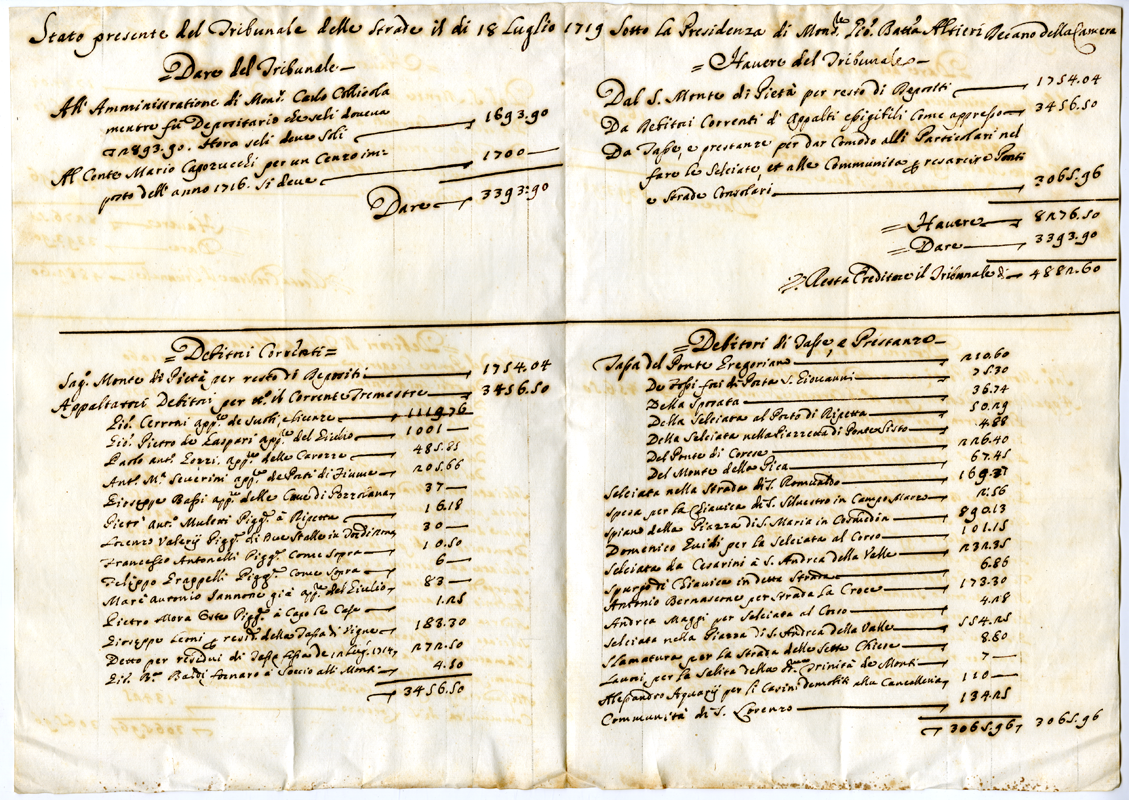 Stato presente del Tribunale delle Strade il di 18 Luglio 1719 Sotto la Presidenza di Mons.re Gio. Batta Altieri Decano della Camera
Dare del Tribunale
All'Amministratione di Mons. Carlo Collicola
mentre fù Depositario che seli doueua
2893.90. Hora seli deue Soli 1693.90
Al Conte Mario Capozucchi per un Cenzo im:
posto dell'anno 1716. Si deue 1700
Dare 3393:90
= Hauere del Tribunale
Dal S. Monte di Pietà per resto di Depositi 1754.04
Da Debitri Correnti d'Appalti esigibili Come appresso 3456.50
Da Tasse, e prestanze per dar Comodo alli Particolari nel
fare le Selciate, et alle Communità resarcire Ponti
e Strade Consolari 3065.96
= Hauere 8276.50
= Dare 3393.90
Resta Creditore il Tribunale di 4882.60
= Debitri Corrēnti =
Sag. Monte di Pietà per resto di Depositi 1754.04
Appaltatri Debitri per il Corrente Tremestre 3456.50
Gio. Cerroni app.re 1119.76
Gio. Pietro de Gaspari app.re del Giulio 1001
Paolo Ant.o app.re delle Carozze 485.85
Ant.o M.a Severini app.re de Ponti di Fiume 205.66
Giuseppe Bassi app.re delle Caue di Pozzolana 37
Pietr'Ant.o Muletti Pigg.e à Ripetta 16.18
Lorenzo Valerij Pigg.e di Due Stalle in 30
Francesco Antonelli Pigg.e Come sopra 10.50
Filippo Grappelli Pigg.e Come sopra 6
Marc'Antonio Iannone già app.re del Giulio 83
Pietro Mora Oste Pigg.e à Capo le Case 1.25
Giuseppe Leoni resid. della Tassa di Vigne 183.30
Detto per residui di Tassa 1717 272.50
Gio. B.a Baldi à Soccio alli Monti 4.50
3456.50
= Debitori di Tasse, e Prestanze
Tassa del Ponte Gregoriano 210.60
De Fossi fori di Porta S. Giouanni 75.30
Della Sporata 36.74
Della Selciata al Porto di Ripetta 50.29
Della Selciata nella Piazzetta di Pontesisto 4.88
Del Ponte di Corese 226.40
Del Monte della Pica 67.45
Selciata nella Strada di S. Romualdo 169.37
Spesa per la Chiauica di S. Siluestro in Campo Marzo 2.56
Spiano della Piazza di S. Maria in Cosmedin 890.13
Domenico Guidi per la Selciata al Corso 101.15
Selciata da Cesarini à S. Andrea della Valle 232.35
Spurgo di Chiauica in dette Strade 6.86
Antonio Bernascone per Strada la Croce 173.30
Andrea Maggi per Selciata al Corso 4.28
Selciata nella Piazza di S. Andrea della Valle 554.25
Slamatura per la Strada delle Sette Chiese 8.80
Lauori per la Salita della Trinità de Monti 7
Alesandro Aquarij per li Casini demoliti alla Cancellaria 110
Communità di S. Lorenzo 134.25
3065.96 3065.96